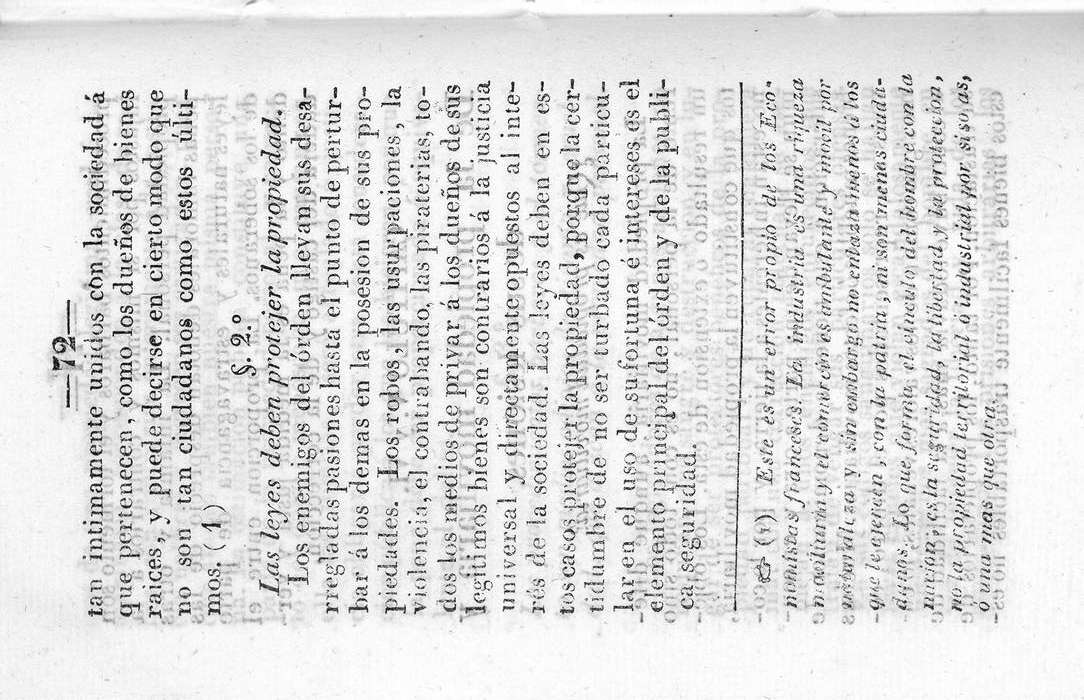 —72—
tan intimamente unidos con la sociedad á
que pertenecen, como los dueños de bienes
raices, y puede decirse en cierto modo que
no son tan ciudadanos como estos últi-
mos (1)
§. 2.º
Las leyes deben protejer la propiedad.
Los enemigos del órden llevan sus desa-
rregladas pasiones hasta el punto de pertur-
bar á los demas en la posesion de sus pro-
piedades. Los robos, las usurpaciones, la
violencia, el contrabando, las piraterias, to-
dos los medios de privar á los dueños de sus
legitimos bienes son contrarios á la justicia
universal y directamente opuestos al inte-
rés de la sociedad. Las leyes deben en es-
tos casos protejer la propiedad, porque la cer-
tidumbre de no ser turbado cada particu-
lar en el uso de su fortuna é intereses, es el
elemento principal del órden y de la publi-
ca seguridad.
☞ (1) Este es un error propio de los Eco-
nomistas franceses. La industria es una riqueza
moviliaria y el comercio es ambulante y movil por
naturaleza y sin embargo no enlazan menos á los
que le ejercen, con la patria, ni son menos ciuda-
danos. Lo que forma el vinculo del hombre con la
nacion, es la seguridad, la libertad y la proteccion,
no la propiedad territorial ó industrial por si solas,
ó una mas que otra.